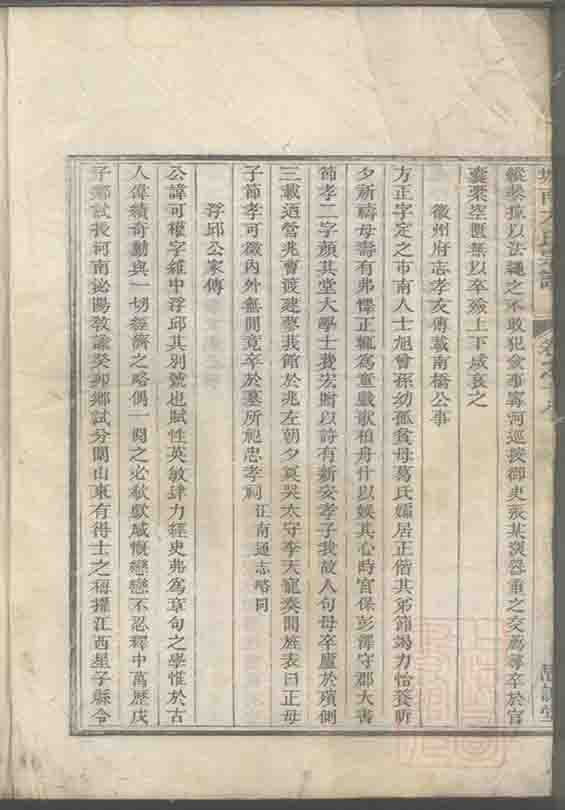 縱操據以法繩之不敢犯僉事甯河巡按御史張某深器重之交薦尋卒於官
囊橐空匱無以卒殮上下咸哀之
徽州府志孝友傳載南橋公事
方正字定之市南人士旭曾孫幼孤貧母葛氏孀居正偕其弟節竭力怡養昕
夕祈禱母壽有弗懌正輒爲童戲歌柏舟什以娛其心時官保彭澤守郡大書
節孝二字顏其堂大學士費宏贈以詩有新安孝子我故人句母卒廬於殯側
三載迺營兆曹渡建夢莪館於兆左朝夕奠哭太守李天寵奏聞旌表曰正母
子節孝可徵內外無間竟卒於墓所祀忠孝祠江南通志略同
浮邱公家傳
公諱可權字維中浮邱其別號也賦性英敏肆力經史弗爲章句之學惟於古
人偉績奇勳與一切經濟之略偶一閱之必欷歔感慨戀戀不忍釋中萬歷戊
子鄉試授河南泌陽敎諭癸卯鄉試分闈山東有得士之稱擢江西星子縣令